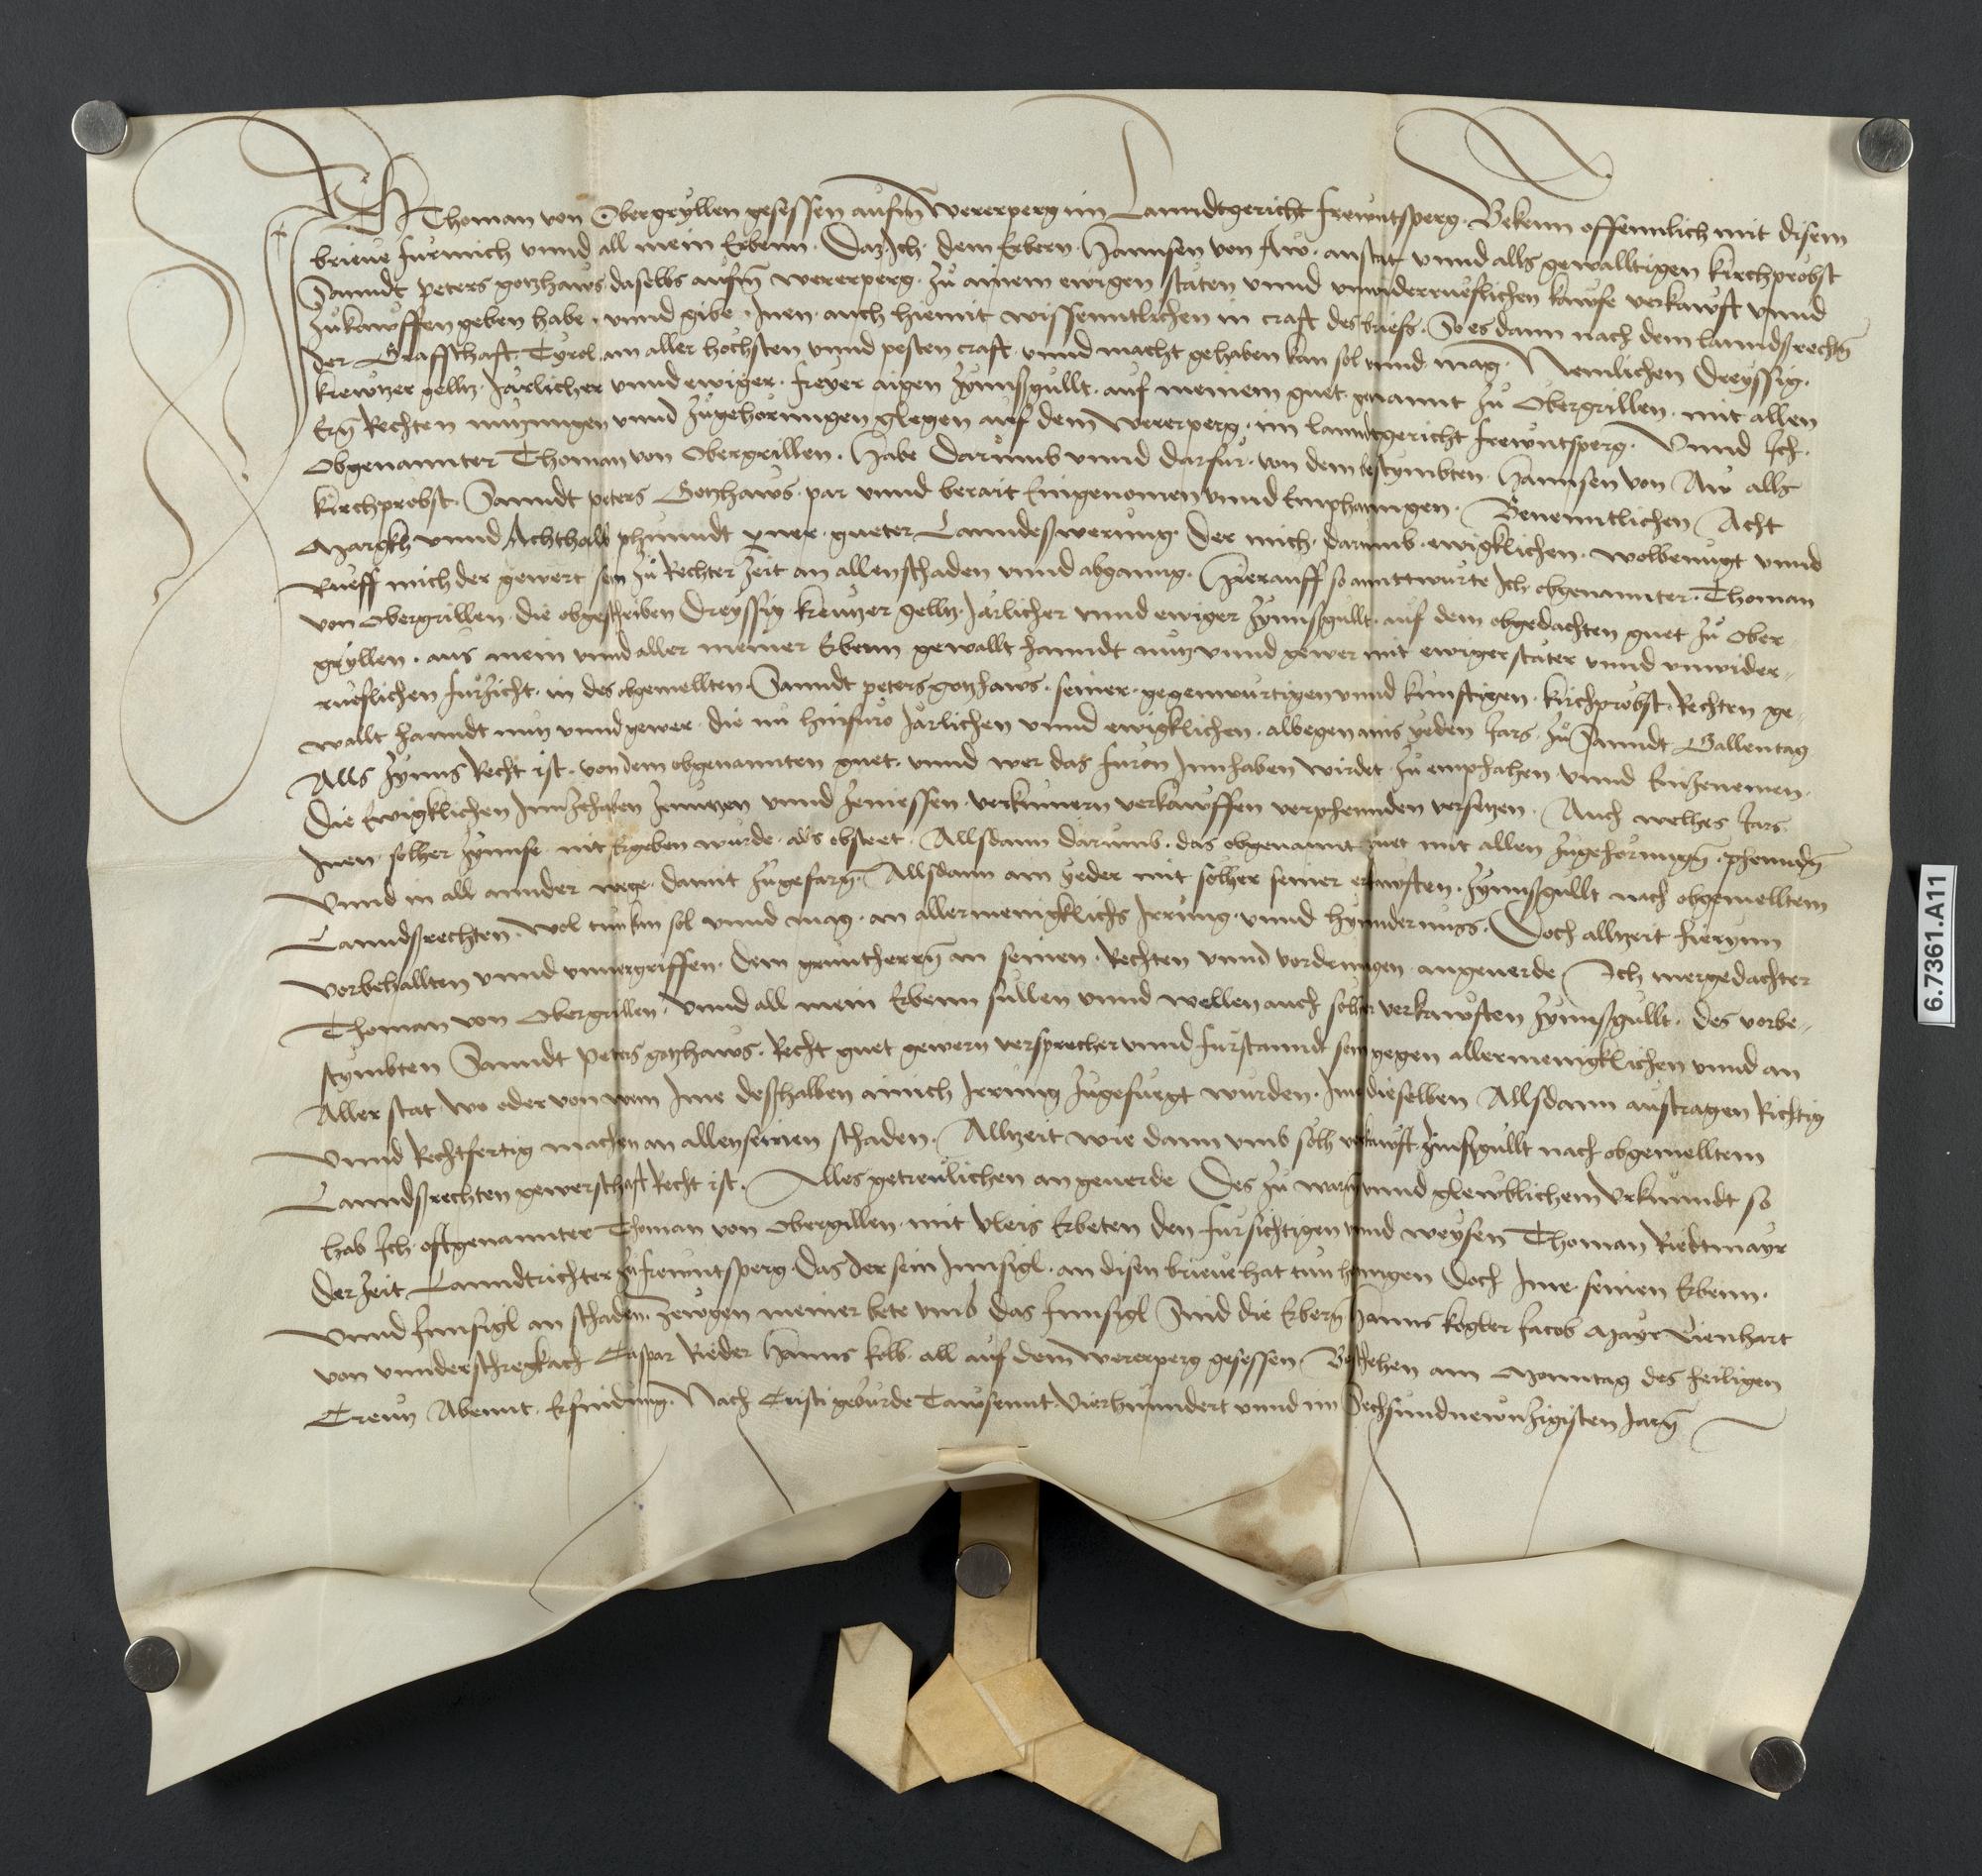 Ich Thoman von Obergryllen gesessen aufm Wererperg im Lanndtgericht frewntsperg. Bekenn offennlich mit disem
brieue fur mich vnnd all mein Erbenn. Daz Ich dem Erbern Hannsen von Aw. anstat vnnd alls gewalltigen kirchprobst
Sanndt peters gotzhaws daselbs aufm wererperg. zu ainem ewigen stäten vnnd vnwiderrueflichen kawfe verkawft vnnd
zukawffen geben habe. vnnd gibe. Inen auch hiemit wissenntlichen in craft des briefs. So es dann nach dem lanndßrechtn
der Graffschaft Tyrol am aller höchsten vnnd pesten craft vnnd macht gehaben kan sol vnnd mag. Nemlichen Dreyssig.
krewtzer gelltz. Järlicher vnnd ewiger. freyer aigen zynnßgullt. auf meinem guet genannt zu Obergrillen. mit allen
Ern Rechten nutzungen vnnd zugehorungen glegen auf dem Wererperg. im lanndtgericht frewntsperg. Vnnd Ich.
Obgenannter Thoman von Obergrillen. Habe darumb vnnd darfur. von dem bestymbten. Hannsen von Aw alls
kirchprobst. Sanndt peters Gotzhaws. par vnnd berait Eingenomen vnnd Emphanngen. Benenntlichen Acht
Margkh vnnd Achthalb phunndt perner. gueter Lanndeßwerung. Der mich. darumb. ewigklichen. wolbenugt vnnd
Rueff mich der gewert sein zu Rechter zeit an allen schaden vnnd abganng. Hierauff so anntwurte Ich obgenannter. Thoman
von Obergrillen. die obgeschriben Dreyssig krewtzer gelltz. Järlicher vnnd ewiger zynnßgullt. auf dem obgedachten guet zu Ober
gryllen. aus mein vnnd aller meiner Erbenn gewallt hanndt nutz vnnd gewer mit ewiger stäter vnnd vnwider-
rueflichen furzicht. in des obgemellten. Sanndt peters gotzhaws. seiner. gegenwurtigen vnnd kunftigen. kirchprobst. Rechten ge-
wallt hanndt nutz vnnd gewer. die nu hinfuro Järlichen vnnd ewigklichen. albegen ains yeden Jars. zu Sanndt Gallentag
Alls zynns Recht ist. von dem obgenannten guet. vnnd wer das furon Innhaben wirdet. zu emphahen vnnd Einzenemen.
Die Ewigklichen Innzehaben zenutzen vnnd zeniessen. verkumern verkawffen verphennden versetzen. Auch welhes Jars
Inen solher zynnse. nit Ergeben wurde. als obsteet. Allsdann darumb. das obgenannt guet mit allen zugehorungn. phenndn
Vnnd in all annder wege. damit zugefarn. Allsdann am yeder mit solher seiner erkawften. zynnßgullt nach obgemelltem
Lanndßrechten. Wol tun kan sol vnnd mag. an allermenigklichs Irrung. vnnd hynndernuss. Doch alltzeit hierynn
vorbehallten vnnd vnuergriffen. dem gruntherrn an seinen. Rechten vnnd vordrungen angeuerde Ich mergedachter
Thoman von Obergrillen. vnnd all mein Erbenn sullen vnnd wellen auch solher verkawften zynnßgullt. des vorbe-
stymbten Sanndt peters gotzhaws. Recht guet gewern versprecher vnnd furstannd sein gegen allermenigklichen vnnd an
Aller stat. wo oder von wem Ime deßhalben ainich Irrung zugefuegt wurden. Ime dieselben Allsdann austragen Richtig
Vnnd Rechtfertig machen an allen seinen schaden. Alltzeit wie dann vmb solh verkawft. zinßgullt nach obgemelltem
Lanndßrechten gewerschaft Recht ist. Alles getreulichen angeuerde Des zu warn vnnd glewblichem Vrkunndt so
hab Ich oftgenannter Thoman von Obergrillen. mit vleis Erbeten den fursichtigen vnnd weysen Thoman Riedtmayr
derzeit Lanndtrichter zu frewntsperg. Das der sein Innsigl. an disen brieue hat tun hanngen Doch Ime seinen Erbenn.
Vnnd Innsigl an schaden. Zewgen meiner bete vmb das Innsigl Sind die Erbern Hanns kogler Jacob Mayr Lienhart
von vnnderschregkach Caspar Rieder Hanns kolb. all auf dem Wererperg gesessen Beschehen am Monntag des heiligen
Crewtz Abennt. Erfindung. Nach Cristi geburde Tawsennt Vierhunndert vnnd im Sechsundnewntzigisten Jarn
6.7361.A11